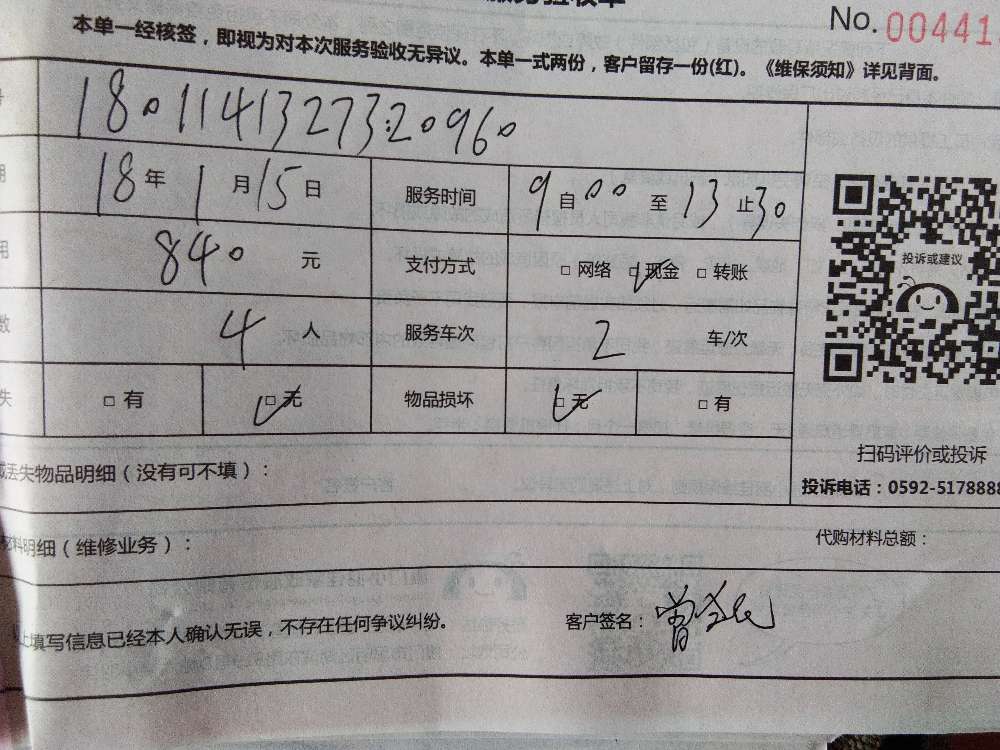 服务验收单
No. 00441
本单一经核签，即视为对本次服务验收无异议。本单一式两份，客户留存一份(红)。《维保须知》详见背面。
1801141327320960
18年1月15日 服务时间 9自00至13止30
840元 支付方式 □网络 ☑现金 □转账
投诉或建议
4人 服务车次 2车/次
失 □有 ☑无 物品损坏 ☑无 □有
扫码评价或投诉
丢失物品明细（没有可不填）：
投诉电话：0592-5178888
材料明细（维修业务）： 代购材料总额：
上填写信息已经本人确认无误，不存在任何争议纠纷。 客户签名：曾